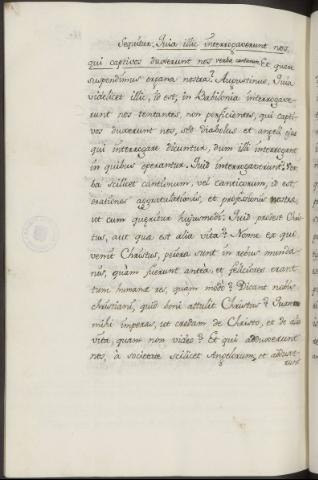 Sequitur. Quia illic interrogaverunt nos,
qui captivos duxerunt nos verba cantionum. Et quare
suspendimus organa nostra? Augustinus. Quia
videlicet illic, id est, in Babilonia interrogave-
runt nos tentantes, non proficientes, qui capti-
vos duxerunt nos, scil. diabolus et angeli ejus
qui interrogare dicuntur, dum illi interrogant
in quibus operantur. Quid interrogaverunt? Ver-
ba scilicet cantionum, vel canticorum, id est
orationes congratulationis, et professionis nostrae
ut cum quaeritur hujusmodi. Quid profuit Chris-
tus, aut qua est alia vita? Nonne ex quo
venit Christus, peiora sunt in rebus munda-
nis, quàm fuerunt antea, et feliciores erant
tum humanae res, quàm modò? Dicant nobis
christiani, quid boni attulit Christus? Quare
mihi imperas, ut credam de Christo, et de alia
vita, quam non video? Et qui adduxerunt
nos, à societate scilicet Angelorum, et addux-
runt